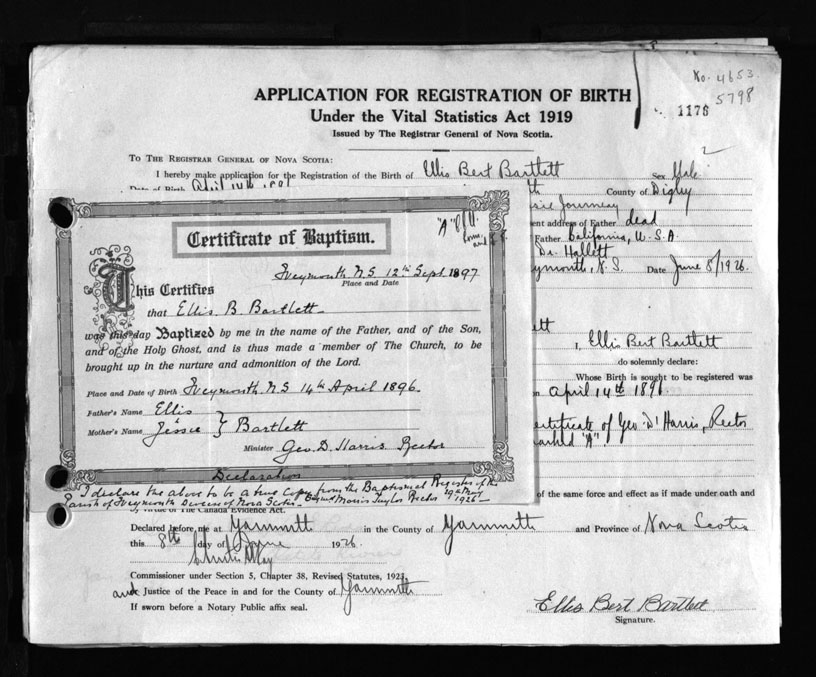 No. 4653
5798
1176
2
APPLICATION FOR REGISTRATION OF BIRTH
Under the Vital Statistics Act 1919
Issued by The Registrar General of Nova Scotia.
TO THE REGISTRAR GENERAL OF NOVA SCOTIA:
I hereby make application for the Registration of the Birth of Ellis Bert Bartlett Sex Male
Date of Birth April 14th
County of Digby
Journeay
ent address of Father dead
Father California, U.S.A.
Dr. Hallett
eymouth, N.S. Date June 8/1926.
"A"
Certificate of Baptism.
Weymouth N.S 12th Sept. 1897
Place and Date
This Certifies
that Ellis B. Bartlett
was this day Baptized by me in the name of the Father, and of the Son,
and of the Holy Ghost, and is thus made a member of The Church, to be
brought up in the nurture and admonition of the Lord.
Place and Date of Birth Weymouth N.S 14th April 1896.
Father's Name Ellis
Mother's Name Jessie } Bartlett
Minister Geo. D. Harris Rector
Declaration
I declare the above to be a true Copy from the Baptismal Register of the
Parish of Weymouth Diocese of Nova Scotia Morris Taylor Rector 19th May 1926
ett
I, Ellis Bert Bartlett
do solemnly declare:
Whose Birth is sought to be registered was
on April 14th 1896.
ertificate of Geo. D. Harris, Rector
marked "A".
of the same force and effect as if made under oath and
by virtue of The Canada Evidence Act.
Declared before me at Yarmouth in the County of Yarmouth and Province of Nova Scotia
this 8th day of June 1926
Commissioner under Section 5, Chapter 38, Revised Statutes, 1923,
and Justice of the Peace in and for the County of Yarmouth
If sworn before a Notary Public affix seal.
Ellis Bert Bartlett
Signature.